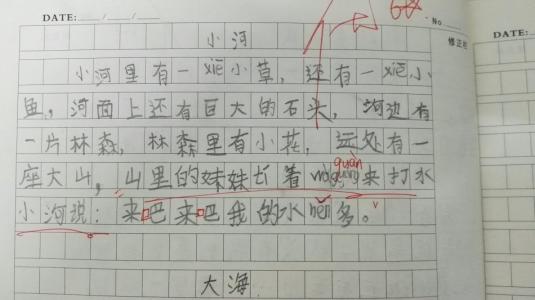 DATE: / /
No
修正栏
DATE:
小河
小河里有一xiē小草，还有一xiē小
鱼，河面上还有巨大的石头，河边有
一片林森，林森里有小花，远处有一
guàn
座大山，山里的妹妹长着来打水
小河说：来吧来吧我的水hěn多。
大海